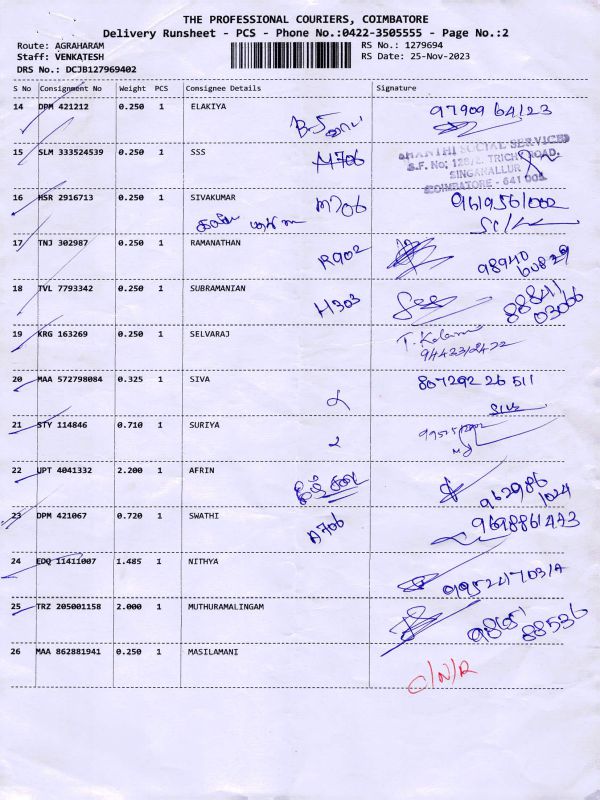 THE PROFESSIONAL COURIERS, COIMBATORE
Delivery Runsheet - PCS - Phone No.:0422-3505555 - Page No.:2
Route: AGRAHARAM
RS No.: 1279694
Staff: VENKATESH
RS Date: 25-Nov-2023
DRS No.: DCJB127969402
S No Consignment No Weight PCS Consignee Details Signature
14 DPM 421212 0.250 1 ELAKIYA
9790964123
15 SLM 333524539 0.250 1 SSS M706
SHANTHI SOCIAL SERVICES
S.F. No: 128/2, TRICHY ROAD,
SINGANALLUR
COIMBATORE - 641 005.
16 HSR 2916713 0.250 1 SIVAKUMAR M706
17 TNJ 302987 0.250 1 RAMANATHAN R902
98940
60829
18 TVL 7793342 0.250 1 SUBRAMANIAN H303
88841
03006
19 KRG 163269 0.250 1 SELVARAJ
20 MAA 572798084 0.325 1 SIVA
807292 26 511
Siva
21 STY 114846 0.710 1 SURIYA 2
22 UPT 4041332 2.200 1 AFRIN
962986
1024
23 DPM 421067 0.720 1 SWATHI A706
9698861443
24 EDQ 11411007 1.485 1 NITHYA
25 TRZ 205001158 2.000 1 MUTHURAMALINGAM
88536
26 MAA 862881941 0.250 1 MASILAMANI
C/N/R